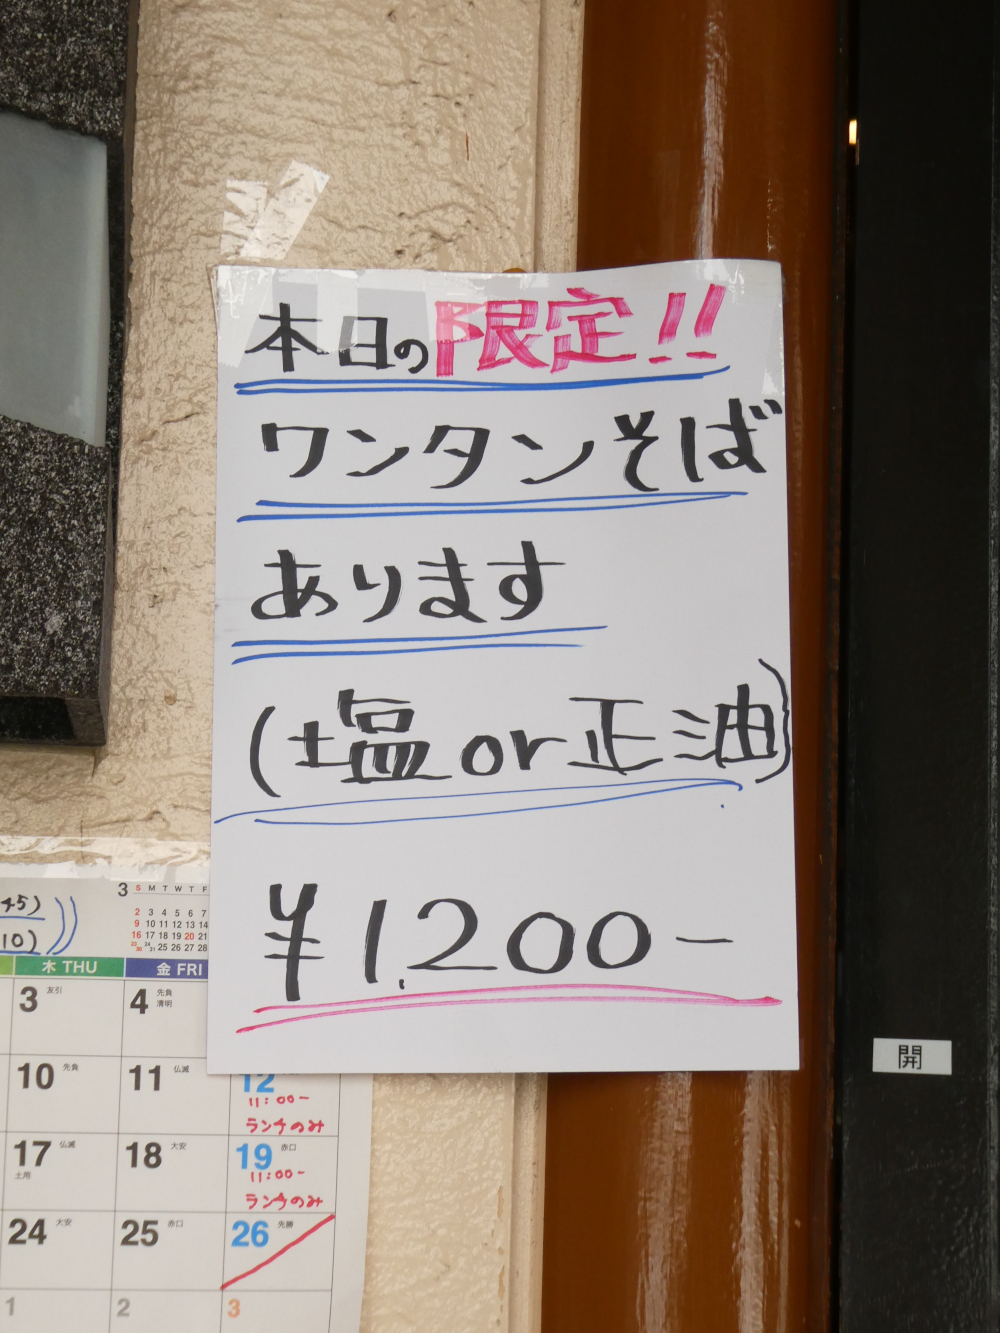 本日の限定!!
ワンタンそば
あります
(塩or正油)
¥1,200-
45)
10)
3
S M T W T F
2 3 4 5 6 7
9 10 11 12 13 14
16 17 18 19 20 21
23/30 24/31 25 26 27 28
木 THU 金 FRI
3 友引 4 先負 清明
10 先負 11 仏滅 12
11:00-
ランチのみ
17 仏滅 土用 18 大安 19 赤口
11:00-
ランチのみ
24 大安 25 赤口 26 先勝
1 2 3
開